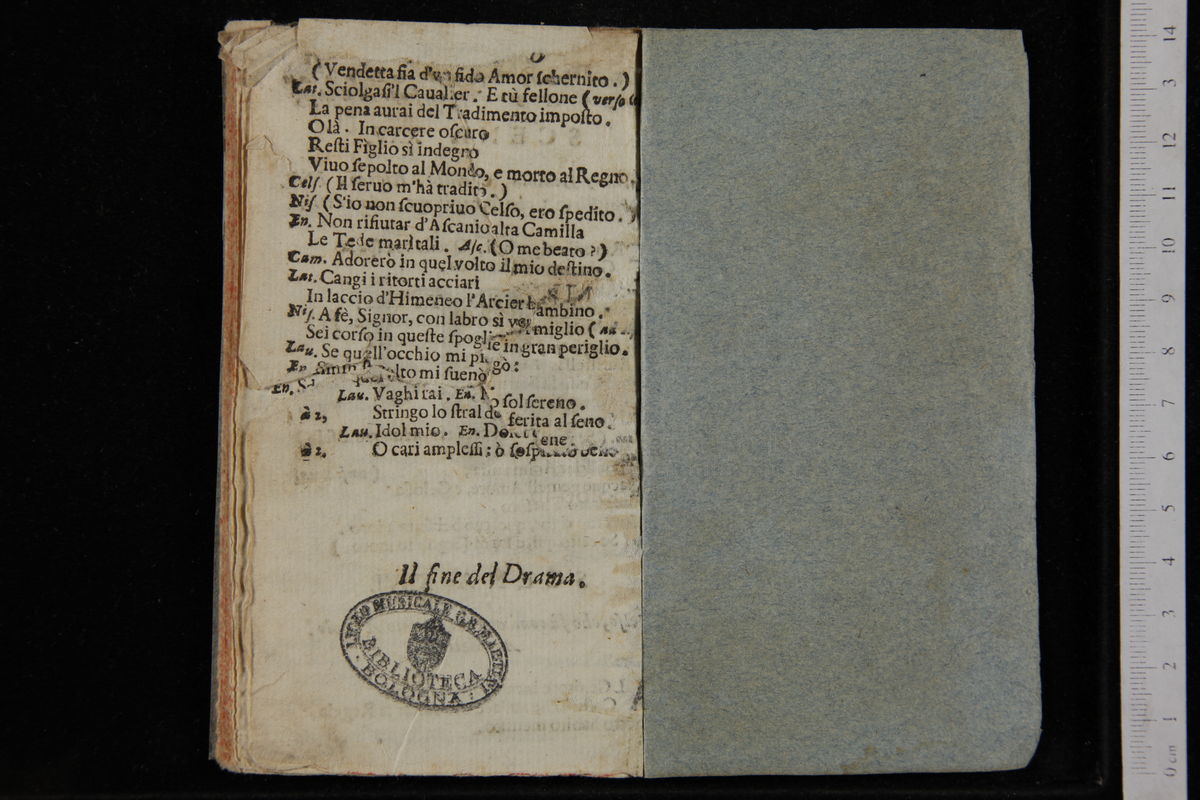 (Vendetta sia d'vn fido Amor schernito.)
Lat. Sciolgasi'l Caualier. E tù fellone (verso
La pena aurai del Tradimento imposto.
Olà. In carcere oscuro
Resti Figlio sì indegno
Viuo sepolto al Mondo, e morto al Regno.
Cels. (Il seruo m'hà tradito.)
Nis. (S'io non scuopriuo Celso, ero spedito.)
En. Non rifiutar d'Ascanio alta Camilla
Le Tede maritali. Asc. (O me beato?)
Cam. Adorerò in quel volto il mio destino.
Lat. Cangi i ritorti acciari
In laccio d'Himeneo l'Arcier bambino.
Nis. A fè, Signor, con labro sì vermiglio (
Sei corso in queste spoglie in gran periglio.
Lau. Se quell'occhio mi piagò:
En. mi suenò
Lau. Vaghi rai. En. sol sereno.
à 2, Stringo lo stral ferita al seno.
Lau. Idol mio. En.
à 2. O cari amplessi; ò
Il fine del Drama.
LICEO MUSICALE G. B. MARTINI
BIBLIOTECA
BOLOGNA
0 cm 1 2 3 4 5 6 7 8 9 10 11 12 13 14